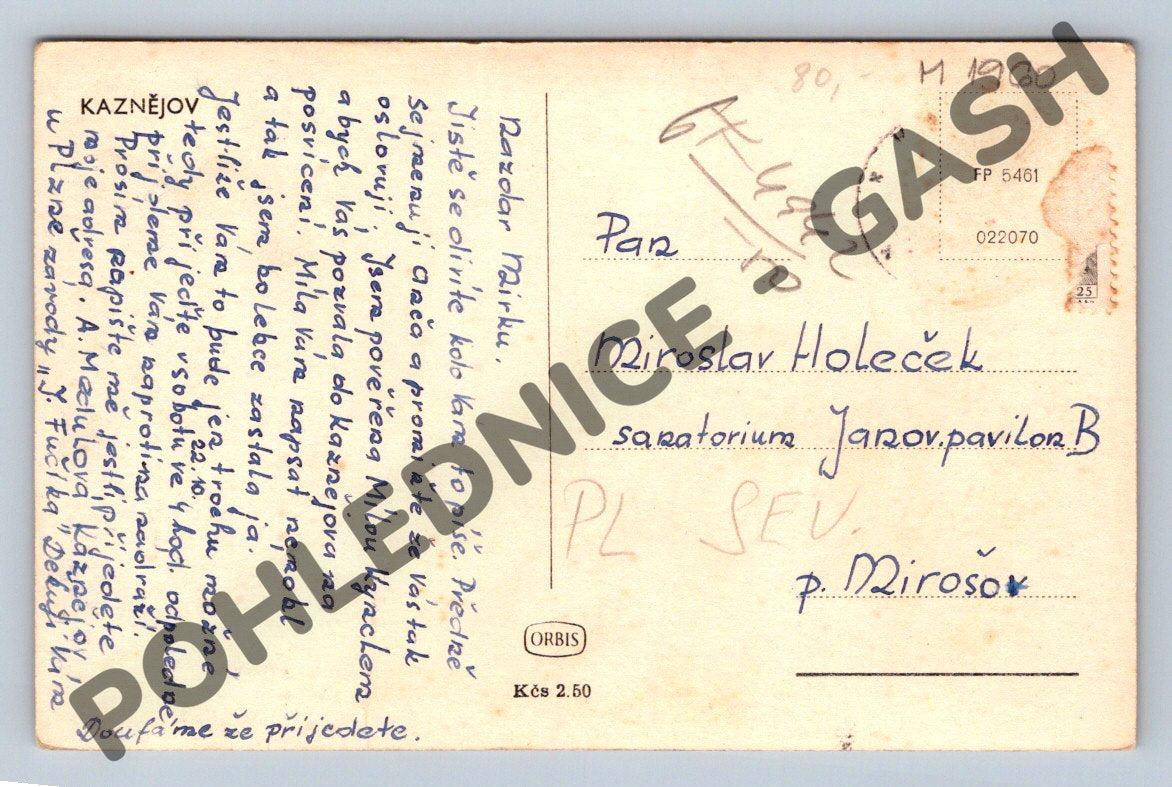 KAZNĚJOV
Nazdar Mirku.
Jistě se divíte kdo Vám to píše. Předně
se jmenuji Anča a promiňte že Vás tak
oslovuji. Jsem pověřena Mílou Kynclem
abych Vás pozvala do Kaznějova na
posvícení. Míla Vám napsat nemohl
a tak jsem bolebce zastala já.
Jestliže Vám to bude jen trochu možné
tedy přijeďte v sobotu ve 4 hod. odpoledne
22.10.
přijdeme Vám naproti na nádraží.
Prosím napište mě jestli přijedete
moje adresa. A. Medulová Kaznějov
u Plzně závody "J. Fučíka" Děkuji Vám
Doufáme že přijedete.
80,-
M 1960
FP 5461
022070
25
Pan
Miroslav Holeček
sanatorium Janov. pavilon B
PL SEV.
p. Mirošov
ORBIS
Kčs 2.50
POHLEDNICE - GASH